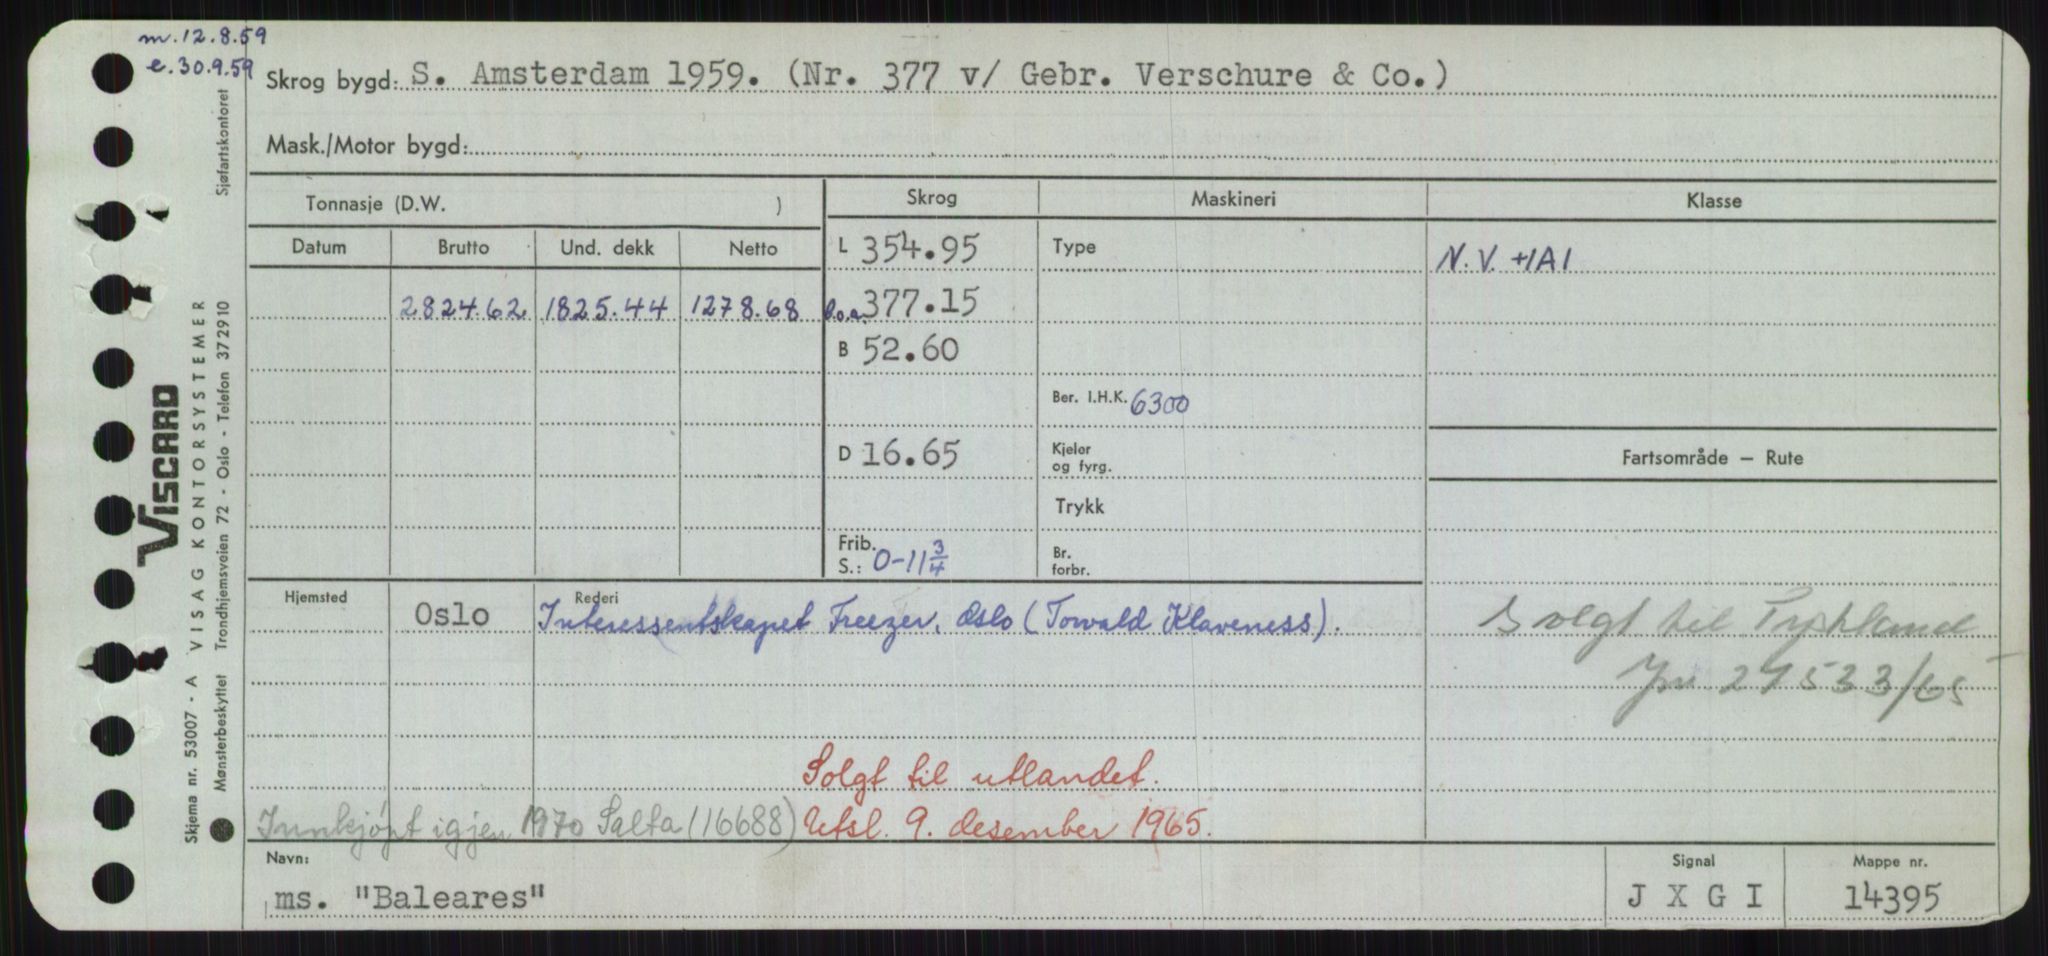 m. 12.8.59
e. 30.9.59
Skrog bygd: S. Amsterdam 1959. (Nr. 377 v/ Gebr. Verschure & Co.)
Mask./Motor bygd:
Tonnasje (D.W. )
Skrog
Maskineri
Klasse
Datum Brutto Und. dekk Netto
L 354.95
Type
N.V. +1A1
2824.62 1825.44 1278.68
l.o.a. 377.15
B 52.60
Ber. I.H.K. 6300
D 16.65
Kjeler
og fyrg.
Fartsområde — Rute
Trykk
Frib.
S.: 0-11 3/4
Br.
forbr.
Hjemsted
Oslo
Rederi
Interessentskapet Freezer, Oslo (Torvald Klaveness).
Solgt til Tyskland
Jnr 27533/65
Solgt til utlandet.
Innkjøpt igjen 1970 Salta (16688)
Utsl. 9. desember 1965.
Navn:
ms. "Baleares"
Signal
J X G I
Mappe nr.
14395
Skjema nr. 53007 - A VISAG KONTORSYSTEMER
Mønsterbeskyttet Trondhjemsveien 72 - Oslo - Telefon 37 29 10
Sjøfartskontoret
VISCARD